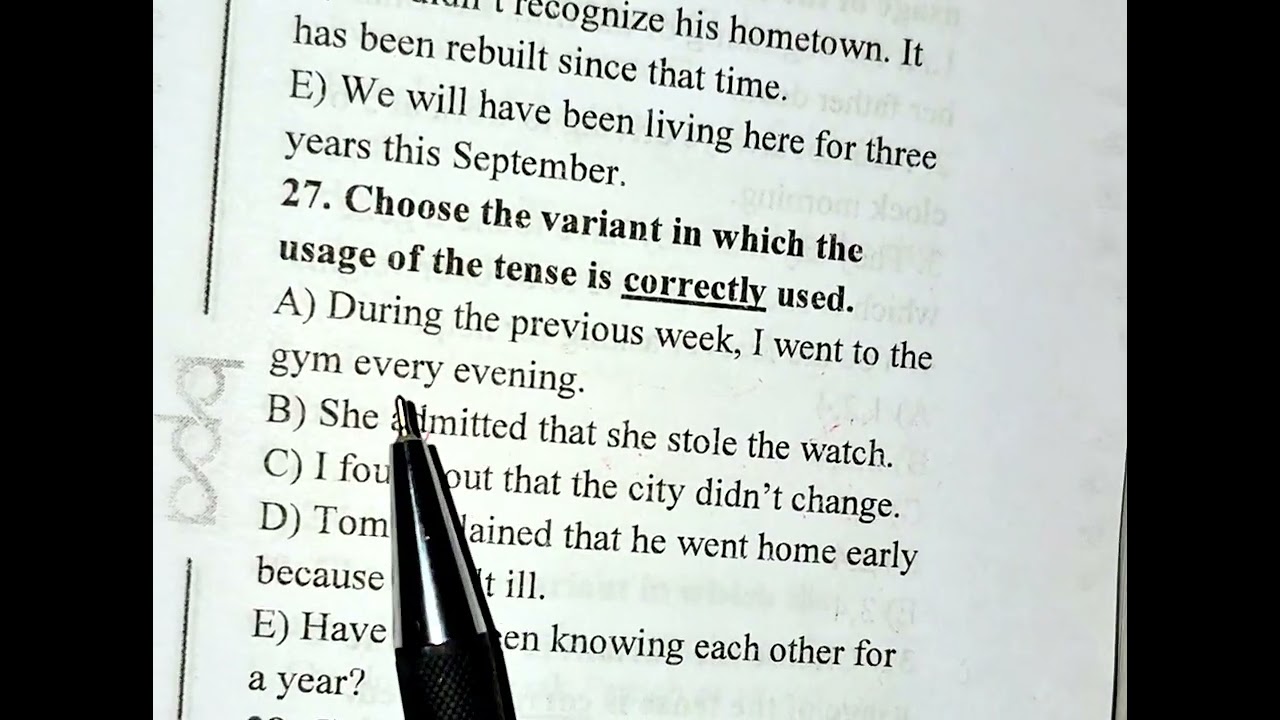 recognize his hometown. It
has been rebuilt since that time.
E) We will have been living here for three
years this September.
27. Choose the variant in which the
usage of the tense is correctly used.
A) During the previous week, I went to the
gym every evening.
B) She admitted that she stole the watch.
C) I out that the city didn't change.
D) Tom that he went home early
because ill.
E) Have knowing each other for
a year?